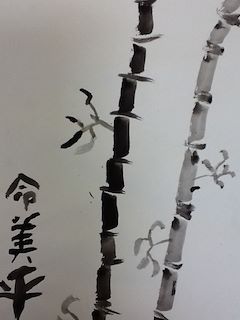 命美平